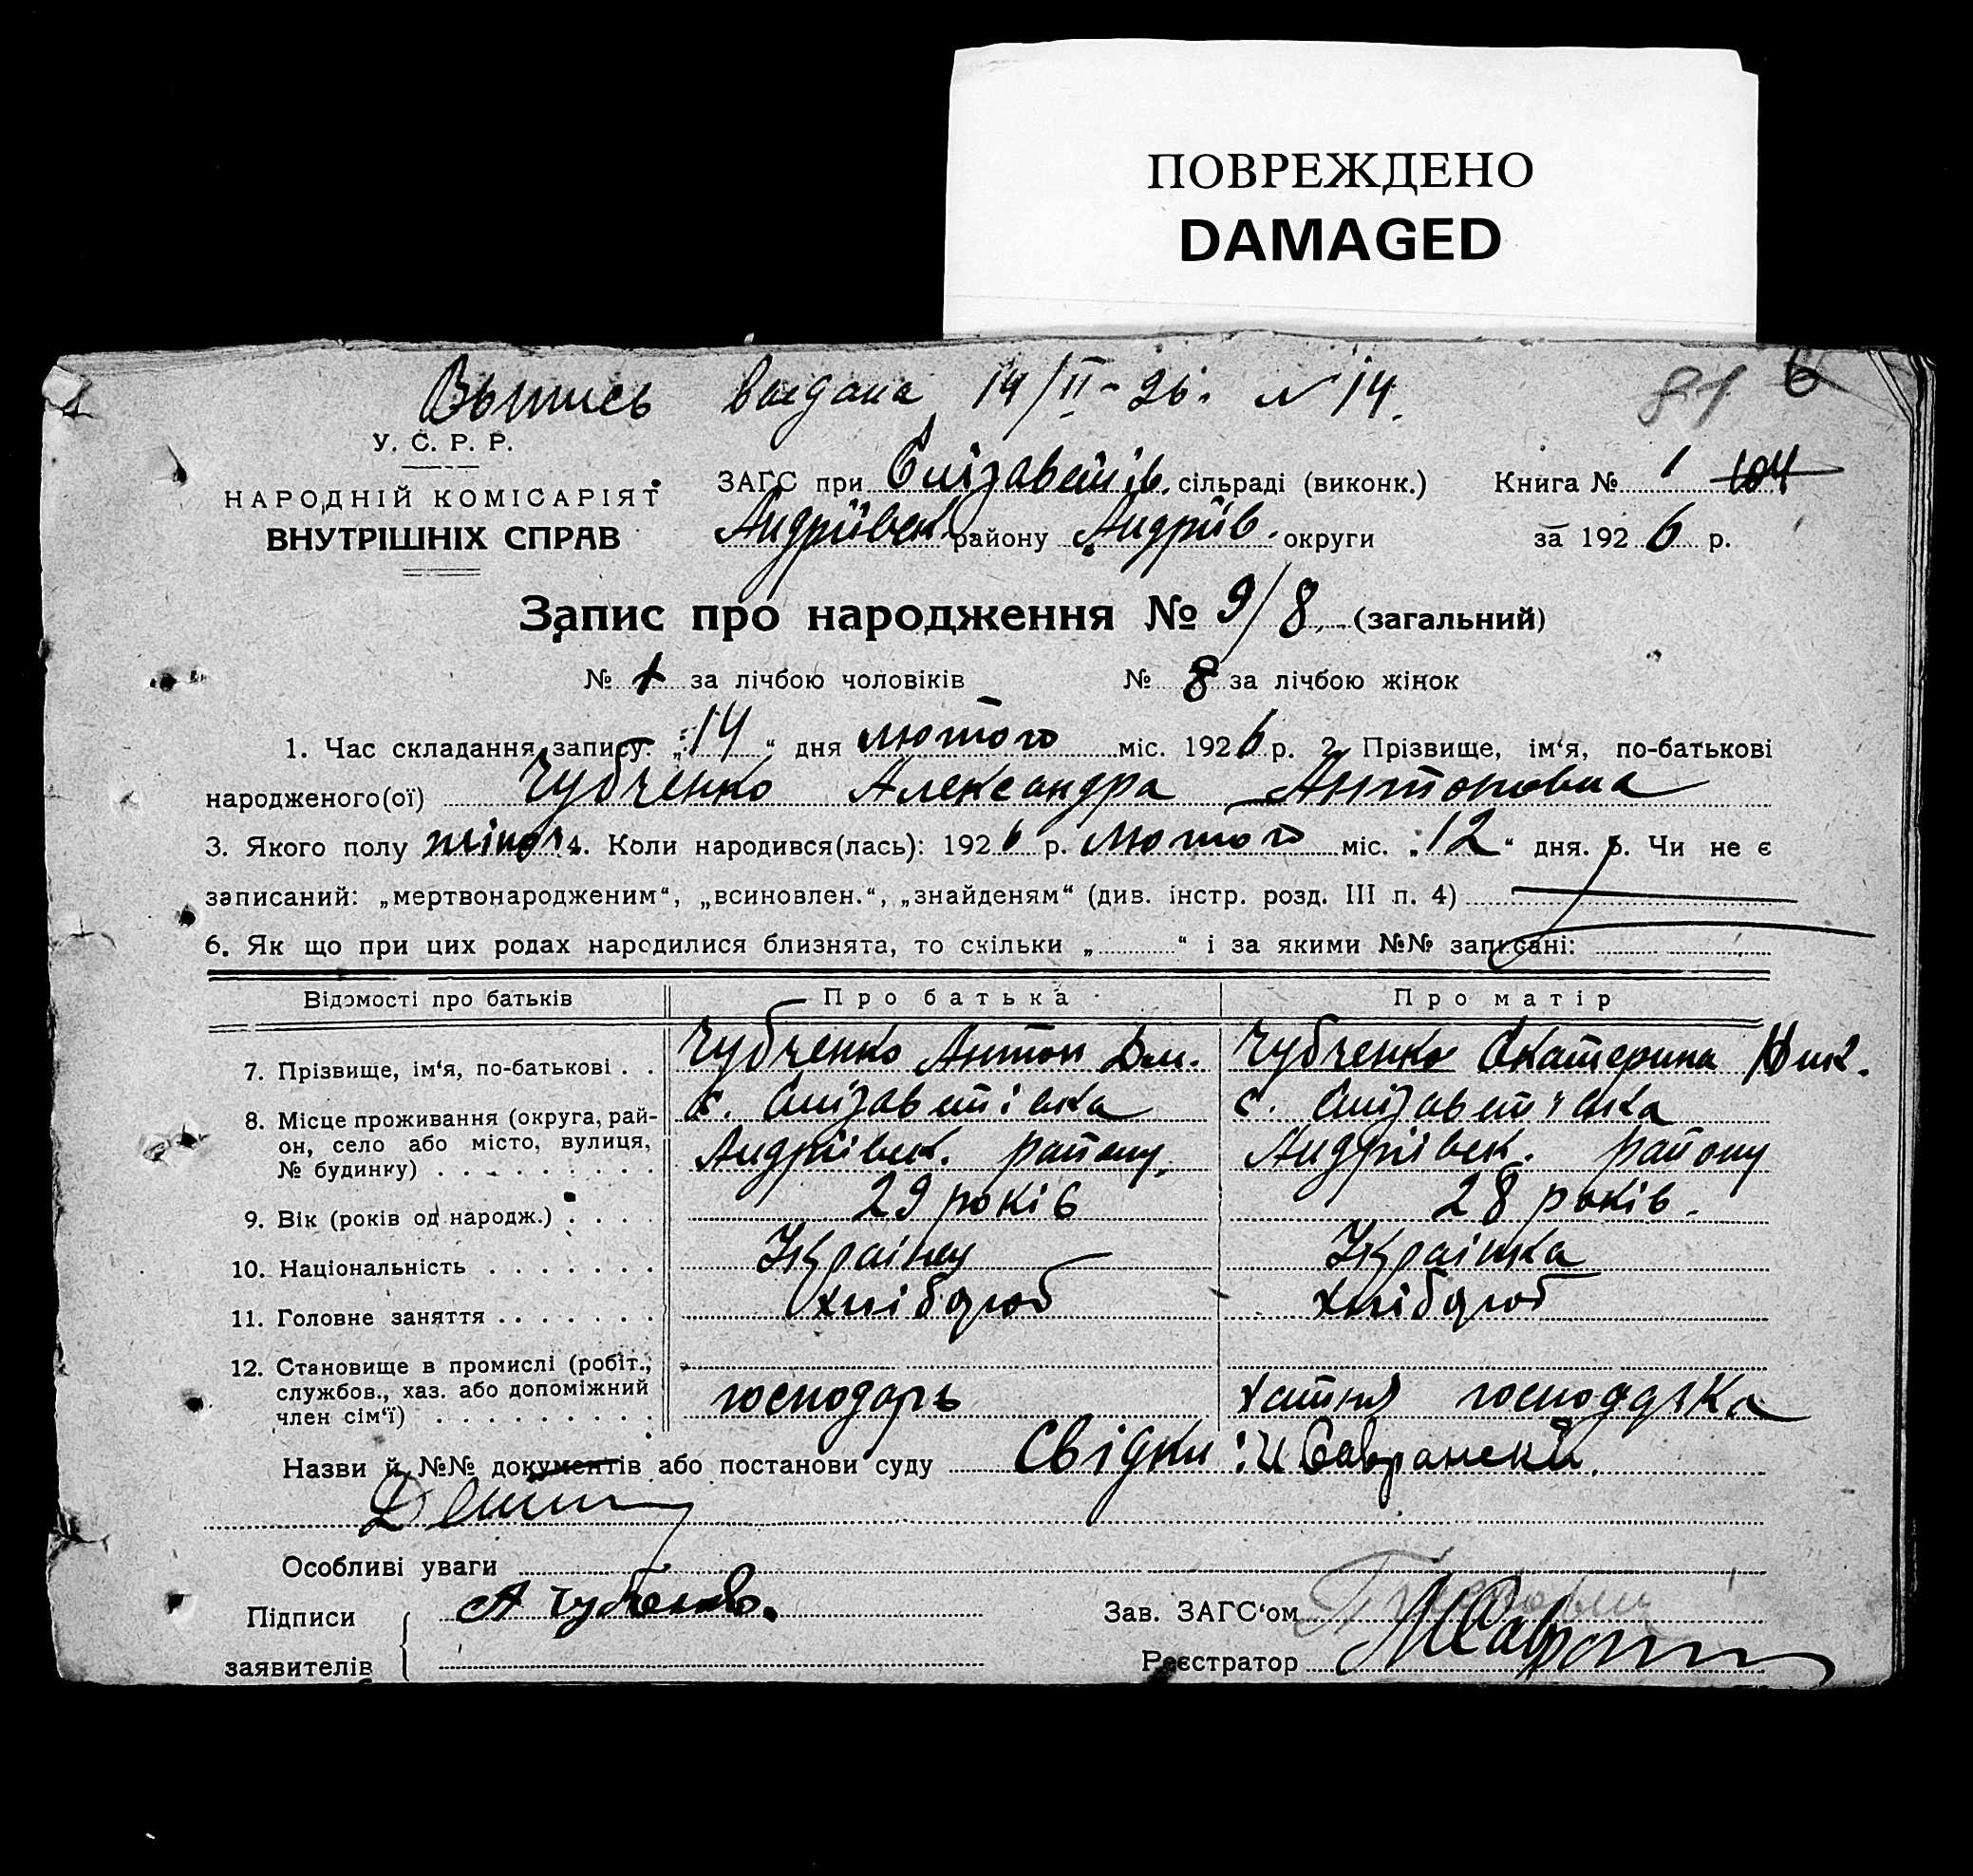 ПОВРЕЖДЕНО
DAMAGED
Выпись выдана 14/II-26. N 14.
81 6
У. С. Р. Р.
НАРОДНІЙ КОМІСАРІЯТ
ВНУТРІШНІХ СПРАВ
ЗАГС при Єлізаветів. сільраді (виконк.)
Андріївськ. району Андріїв. округи
Книга № 1 104
за 1926 р.
Запис про народження № 9/8 (загальний)
№ 1 за лічбою чоловіків № 8 за лічбою жінок
1. Час складання запису: „14“ дня лютого міс. 1926 р. 2. Прізвище, ім‘я, по-батькові
народженого(ої) Чубченко Александра Антоновна
3. Якого полу жіноч. 4. Коли народився(лась): 1926 р. Лютого міс. „12“ дня. 5. Чи не є
записаний: „мертвонародженим“, „всиновлен.“, „знайденям“ (див. інстр. розд. III п. 4)
6. Як що при цих родах народилися близнята, то скільки „ “ і за якими №№ записані:
Відомості про батьків Про батька Про матір
7. Прізвище, ім‘я, по-батькові . . Чубченко Антон Дм. Чубченко Екатерина Ник.
8. Місце проживання (округа, рай- с. Єлізаветівка с. Єлізаветівка
он, село або місто, вулиця, Андріівск. району. Андріівск. району
№ будинку)
9. Вік (років од народж.) 29 років 28 років.
10. Національність Українец Украінка
11. Головне заняття хлібороб хлібороб
12. Становище в промислі (робіт.,
службов., хаз. або допоміжний господарь хатня господарка
член сім‘ї)
Назви й №№ документів або постанови суду Свідки: И Савранский.
Особливі уваги
Підписи А Чубченко.
заявителів
Зав. ЗАГС‘ом
Реєстратор